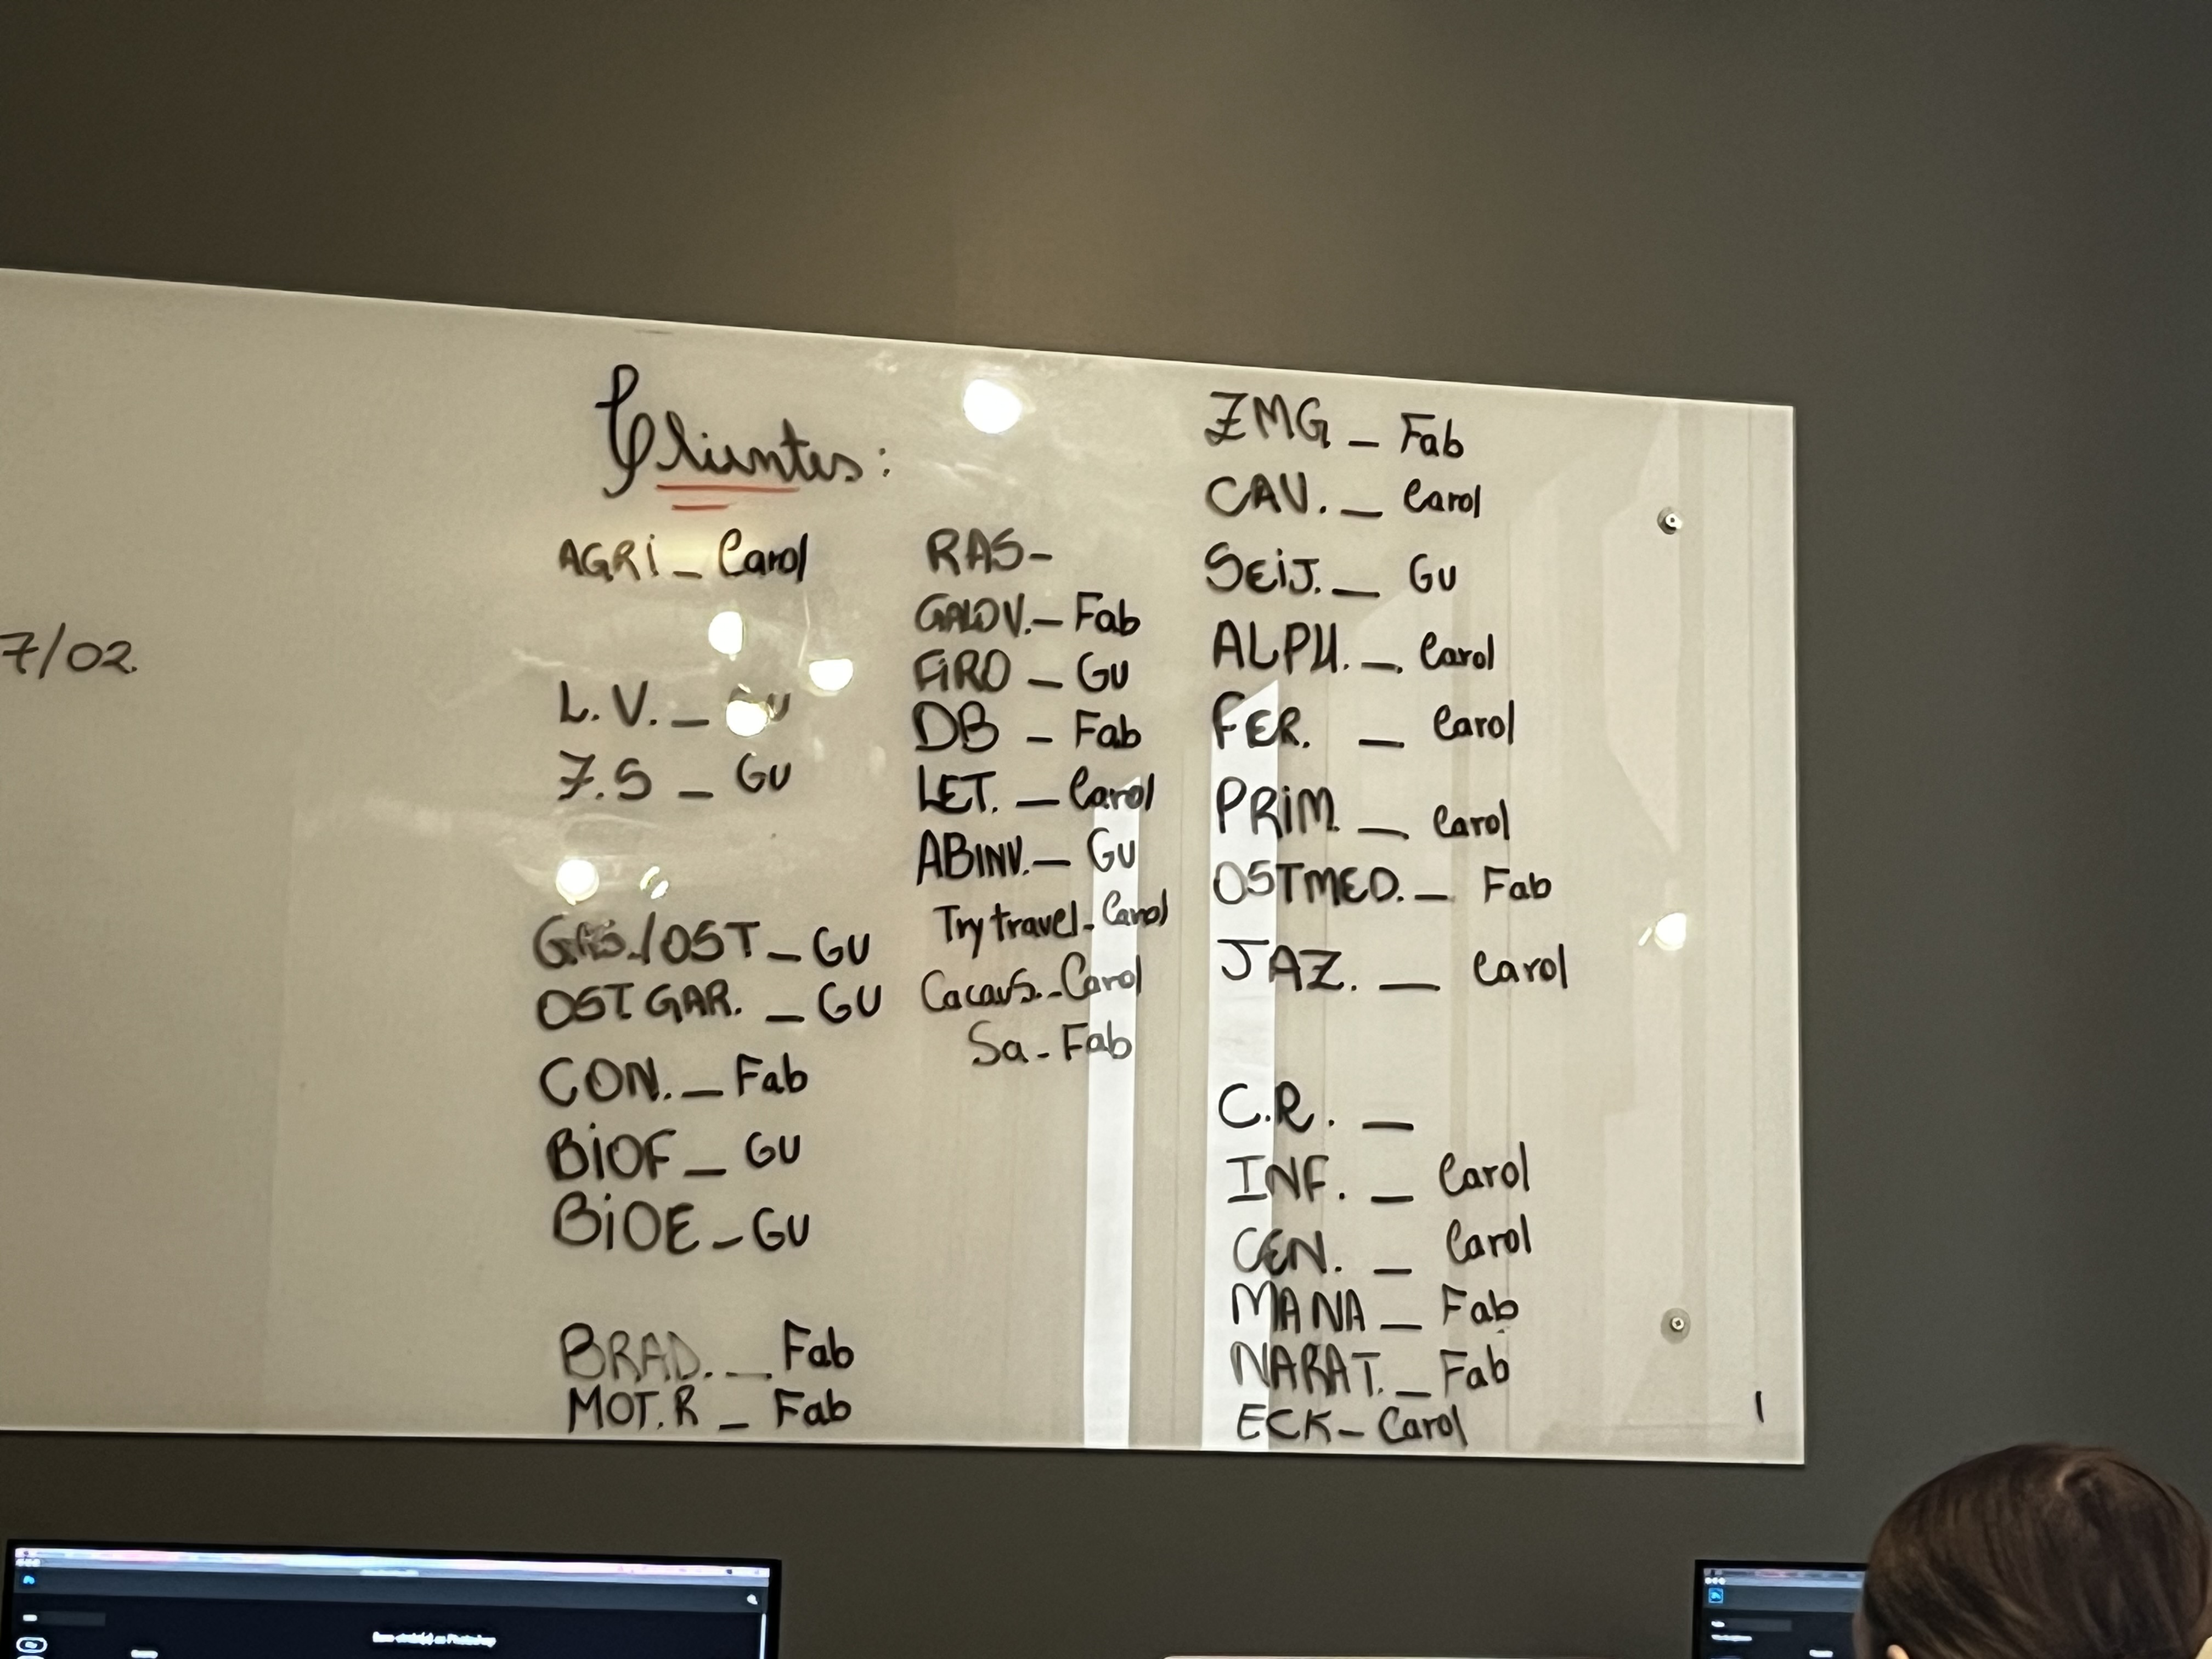 Clientes:
AGRI _ Carol
L.V. _ Gu
7.S _ GU
GAS./OST _ GU
OST GAR. _ GU
CON. _ Fab
BIOF _ GU
BIOE - GU
BRAD. _ Fab
MOT.R _ Fab
RAS-
GALOV. - Fab
FIRO _ GU
DB - Fab
LET. _ Carol
ABINV. - GU
Try travel - Carol
Cacaus. - Carol
Sa - Fab
ZMG _ Fab
CAV. _ Carol
SEIJ. _ GU
ALPH. _ Carol
FER. _ Carol
PRIM. _ Carol
OSTMED. _ Fab
JAZ. _ Carol
C.R. _
INF. _ Carol
CEN. _ Carol
MANA _ Fab
NARAT. _ Fab
ECK - Carol
7/02.